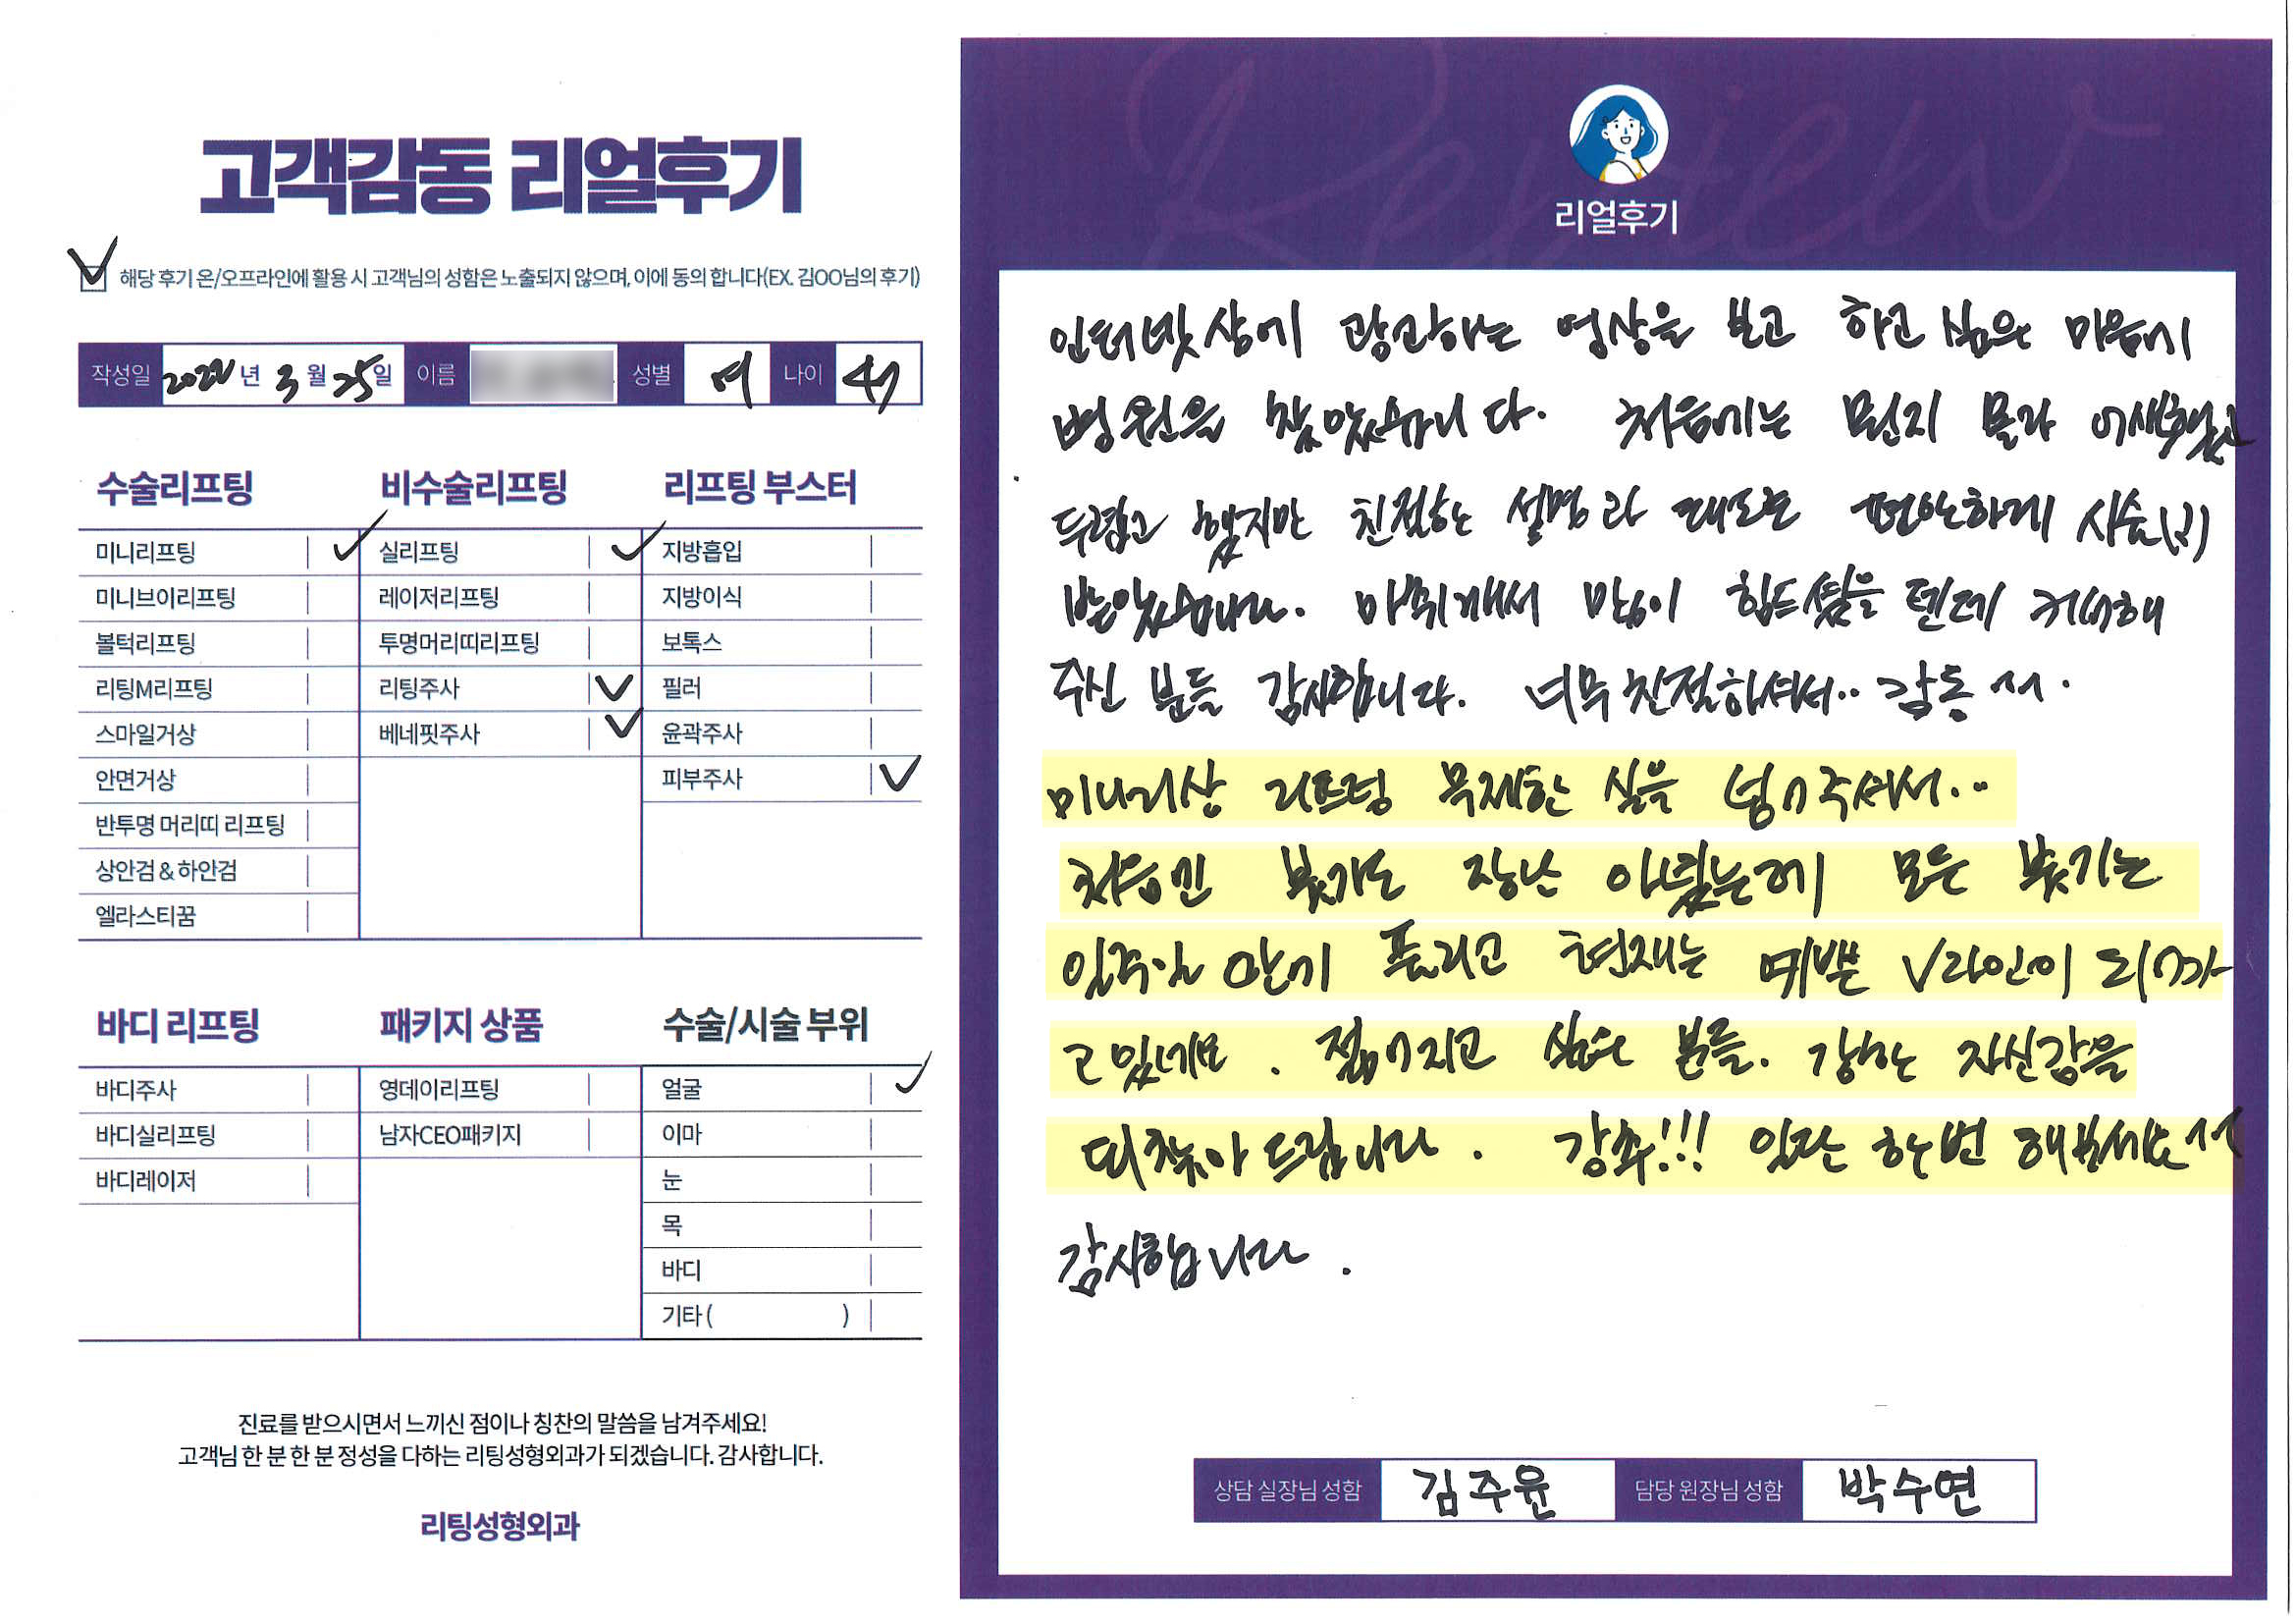 고객감동 리얼후기
해당 후기 온/오프라인에 활용 시 고객님의 성함은 노출되지 않으며, 이에 동의 합니다(EX. 김OO님의 후기)
작성일 2022년 3월 25일 이름 성별 여 나이 47
수술리프팅
미니리프팅
미니브이리프팅
볼턱리프팅
리팅M리프팅
스마일거상
안면거상
반투명 머리띠 리프팅
상안검 & 하안검
엘라스티꿈
비수술리프팅
실리프팅
레이저리프팅
투명머리띠리프팅
리팅주사
베네핏주사
리프팅 부스터
지방흡입
지방이식
보톡스
필러
윤곽주사
피부주사
바디 리프팅
바디주사
바디실리프팅
바디레이저
패키지 상품
영데이리프팅
남자CEO패키지
수술/시술 부위
얼굴
이마
눈
목
바디
기타 ( )
진료를 받으시면서 느끼신 점이나 칭찬의 말씀을 남겨주세요!
고객님 한 분 한 분 정성을 다하는 리팅성형외과가 되겠습니다. 감사합니다.
리팅성형외과
Review
리얼후기
인터넷상에 광고하는 영상을 보고 하고 싶은 마음에
병원을 찾았습니다. 처음에는 뭔지 몰라 어색하고
두렵고 했지만 친절한 설명과 태도로 편안하게 시술
받았습니다. 마취개서 많이 힘드셨을 텐데 커버해
주신 분들 감사합니다. 너무 친절하셔서.. 감동
미니거상 리프팅 무제한 실을 넣어주셔서...
처음엔 붓기도 장난 아녔는데 모든 붓기는
일주일 안에 풀리고 현재는 예쁜 V라인이 되어가
고 있네요. 젊어지고 싶은 분들. 강한 자신감을
되찾아 드립니다. 강추!!! 일단 한번 해보세요
감사합니다.
상담 실장님 성함 김주윤 담당 원장님 성함 박수연